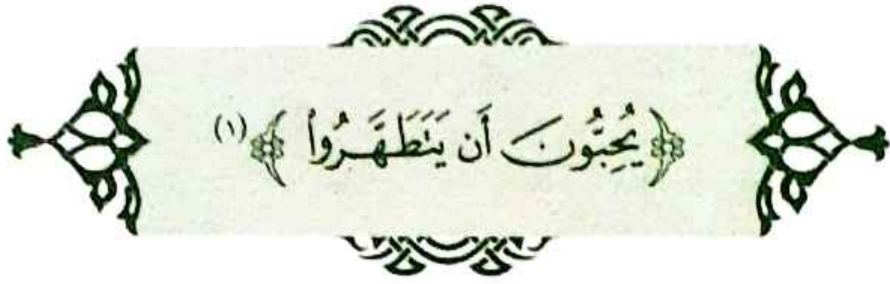 ﴿يُحِبُّونَ أَن يَتَطَهَّرُوا﴾ (١)